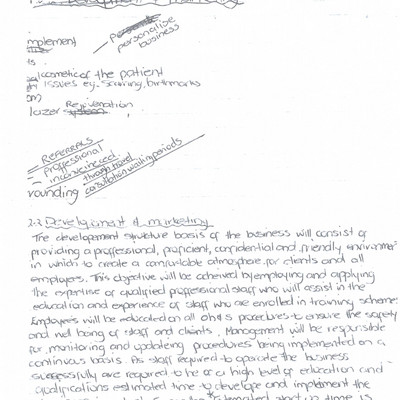 mplement
personalise
business
ts
cosmetic of the patient
issues eg. scarring, birthmarks
lazer Rejuvenation
- REFERRALS
- Proffessional
- Inconvenienced
through travel
consultation waiting periods
rounding
2.2 Development & marketing
The developement structure basis of the business will consist of
providing a proffessional, proficient, confidential and friendly environment
in which to create a comfortable atmosphere, for clients and all
employees. This objective will be acheived by employing and applying
the expertise of qualified proffessional staff who will assist in the
education and experience of staff who are enrolled in training scheme.
Employees will be educated on all OH&S procedures to ensure the safety
and well being of staff and clients, Management will be responsible
for, monitoring and updateing procedures being implemented on a
continuous basis. As staff required to operate the business
successfully are required to be of a high level of education and
qualifications estimated time to develope and implement the
estimated start up time is